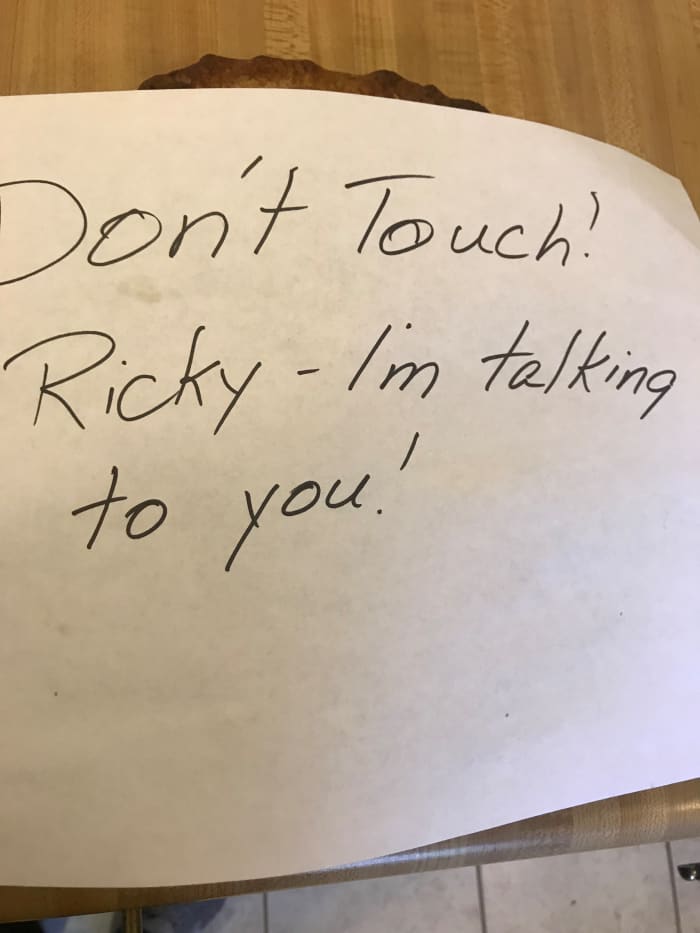 Don't Touch!
Ricky - I'm talking
to you!